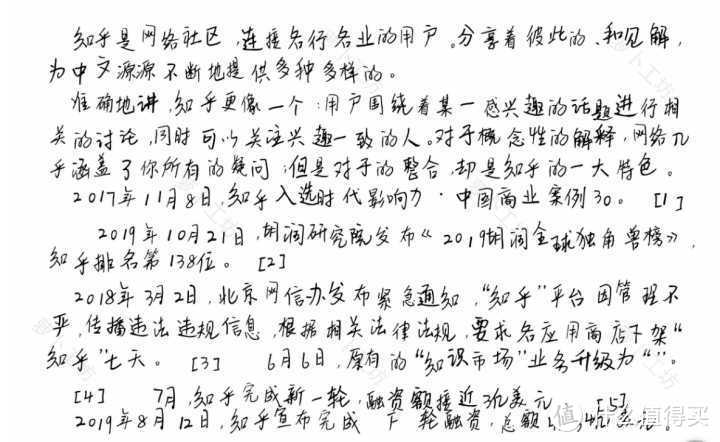 知乎是网络社区,连接各行各业的用户。分享着彼此的、和见解,
为中文源源不断地提供多种多样的。
准确地讲,知乎更像一个:用户围绕着某一感兴趣的话题进行相
关的讨论,同时可以关注兴趣一致的人。对于概念性的解释,网络几
乎涵盖了你所有的疑问;但是对于的整合,却是知乎的一大特色。
2017年11月8日,知乎入选时代影响力·中国商业案例30。 [1]
2019年10月21日,胡润研究院发布《2019胡润全球独角兽榜》,
知乎排名第138位。 [2]
2018年3月2日,北京网信办发布紧急通知,“知乎”平台因管理不
严,传播违法违规信息,根据相关法律法规,要求各应用商店下架“
知乎”七天。 [3] 6月6日,原有的“知识市场”业务升级为“”。
[4] 7月,知乎完成新一轮,融资额接近3亿美元 [5]
2019年8月12日,知乎宣布完成 轮融资,总额
值 什么值得买
萝卜工坊